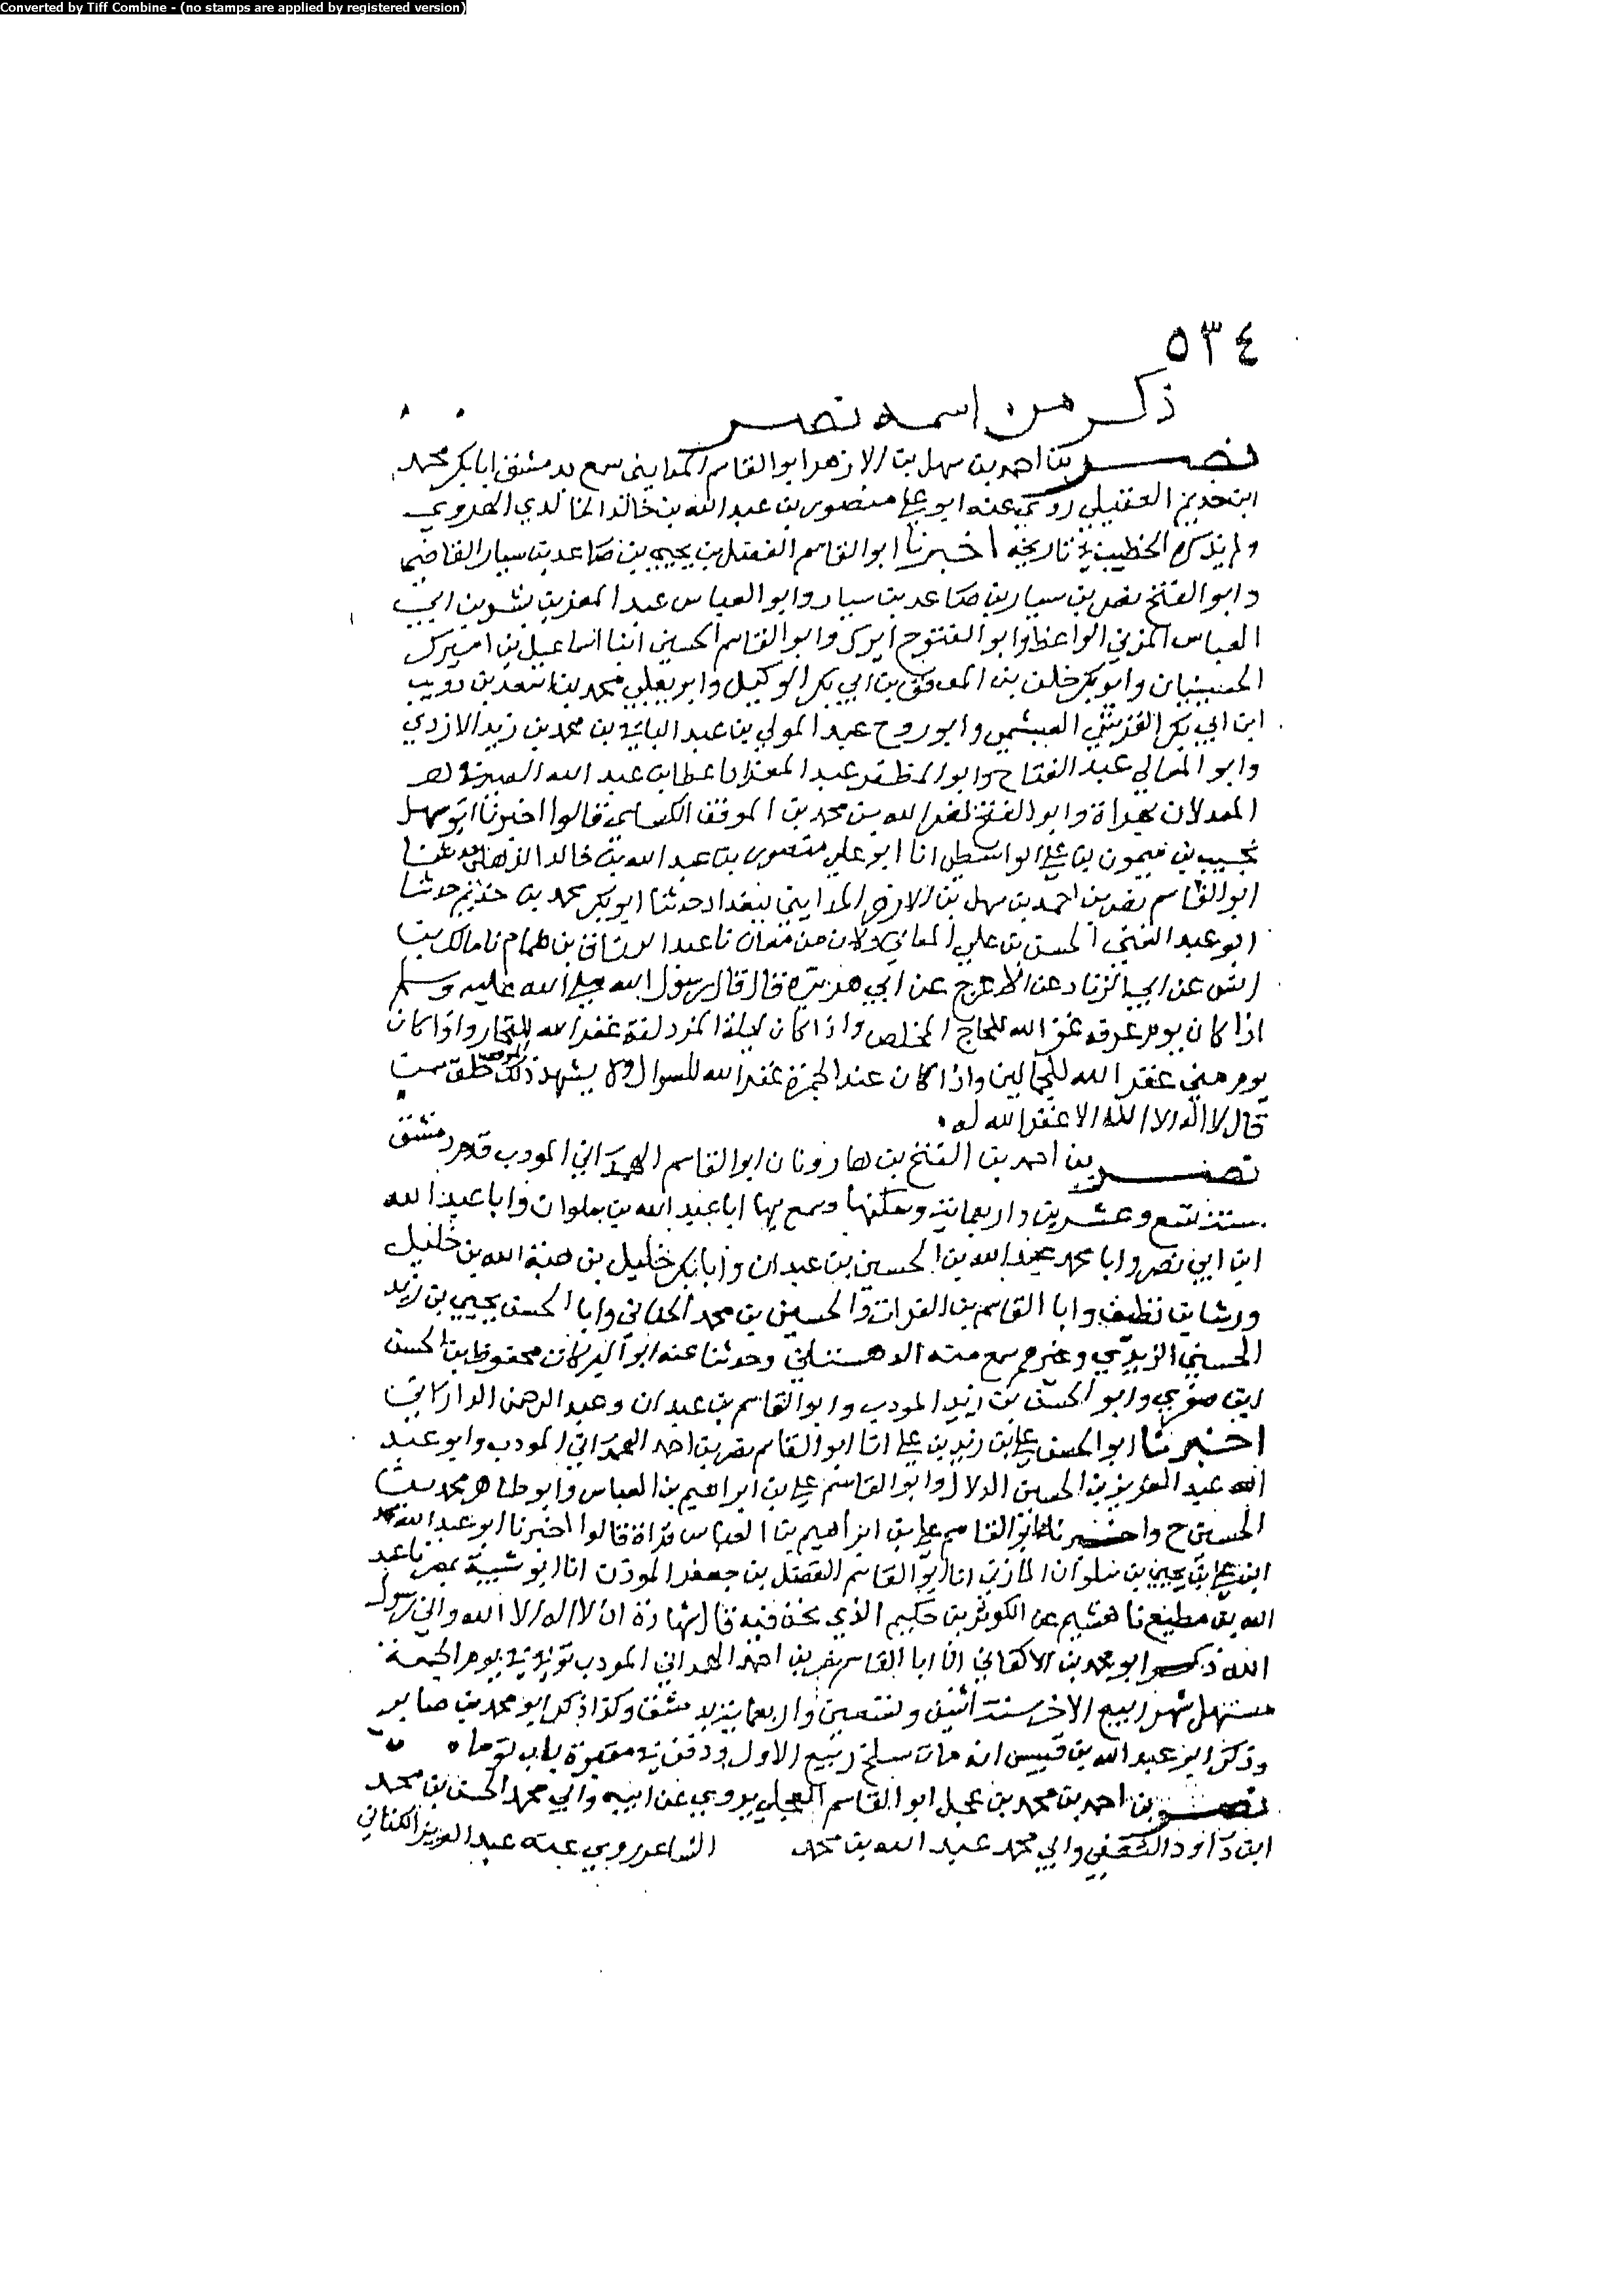 Converted by Tiff Combine - (no stamps are applied by registered version)
٥٣٤
ذكر من اسمه نصر
نصر بن احمد بن سهل بن الازهر ابو القاسم المدايني سمع بدمشق ابا بكر محمد
ابن خديم العقيلي روى عنه ابو علي منصور بن عبد الله بن خالد الخالدي الهروي
ولم يذكره الخطيب في تاريخه اخبرنا ابو القاسم الفضل بن يحيى بن صاعد بن سيار القاضي
وابو الفتح نصر بن سيار بن صاعد بن سيار وابو العباس عبد المعز بن بشر بن ابي
العباس المزني الواعظ وابو الفتوح اميرك وابو القاسم الحسين ابنا اسماعيل بن اميرك
الحسينيان وابو بكر خلف بن الموفق بن ابي بكر الوكيل وابو يعلى محمد بن اسعد بن
ابن ابي بكر العبشمي وابو روح عبد المولى بن عبد الباقي بن محمد بن زيد الازدي
وابو المعالي عبد الفتاح وابو المظفر عبد المعز ابنا عطا بن عبد الله
المعدلان بهراة وابو الفتح نصر الله بن محمد بن الموفق قالوا اخبرنا ابو سهل
نجيب بن ميمون بن علي الواسطي انا ابو علي منصور بن عبد الله بن خالد الذهلي حدثنا
ابو القاسم نصر بن احمد بن سهل بن الازهر المدايني ببغداد حدثنا ابو بكر محمد بن خذيم حدثنا
ابو عبد الغني الحسن بن علي المعاني ولان من معان نا عبد الرزاق بن همام نا مالك بن
انس عن ابي الزناد عن الاعرج عن ابي هريرة قال قال رسول الله صلى الله عليه وسلم
اذا كان يوم عرفه غفر الله للحاج المخلص واذا كان ليلة المزدلفة غفر الله للتجار واذا كان
يوم منى غفر الله للجمالين واذا كان عند الجمرة غفر الله للسوال ولا يشهد ذلك الموقف خلق ممن
قال لا اله الا الله الا غفر الله له
نصر بن احمد بن الفتح بن هارونان ابو القاسم الهمداني المودب قدم دمشق
سنة تسع وعشرين واربعماية وسكنها وسمع بها ابا عبد الله بن سلوان وابا عبد الله
ابن ابي نصر وابا محمد عبد الله بن الحسين بن عبدان وابا بكر خليل بن هبة الله بن خليل
ورشا بن نظيف وابا القاسم بن الفرات والحسين بن محمد الحنائي وابا الحسن يحيى بن زيد
الحسيني الزيدي وغيرهم سمع منه الدهستاني وحدثنا عنه ابو البركات محفوظ بن الحسن
ابن صصري وابو الحسن بن زيد المودب وابو القاسم بن عبدان وعبد الرحمن الداراني
اخبرنا ابو الحسن علي بن زيد بن علي انا ابو القاسم نصر بن احمد الهمداني المودب وابو عبد
الله عبد العزيز بن الحسين الدلال وابو القاسم علي بن ابراهيم بن العباس وابو طاهر محمد بن
الحسين ح واخبرنا ابو القاسم علي بن ابراهيم بن العباس قراة قالوا اخبرنا ابو عبد الله محمد
ابن علي بن يحيى بن سلوان المازني انا ابو القاسم الفضل بن جعفر الموذن انا ابو شيبة بمصر نا عبد
الله بن مطيع نا هشيم عن الكوثر بن حكيم الذي نحن فيه قال شهادة ان لا اله الا الله واني رسول
الله ذكر ابو محمد بن الاكفاني ان ابا القاسم نصر بن احمد الهمداني المودب توفي في يوم الجمعة
مستهل شهر ربيع الاخر سنة اثنين وتسعين واربعماية بدمشق وكذا ذكر ابو محمد بن صابر
وذكر ابو عبد الله بن قبيس انه مات سلخ ربيع الاول ودفن في مقبرة باب توما
نصر بن احمد بن محمد بن عجل ابو القاسم العجلي يروي عن ابيه وابي محمد الحسن بن محمد
ابن داود الثقفي وابي محمد عبد الله بن محمد الشاعر روى عنه عبد العزيز الكتاني